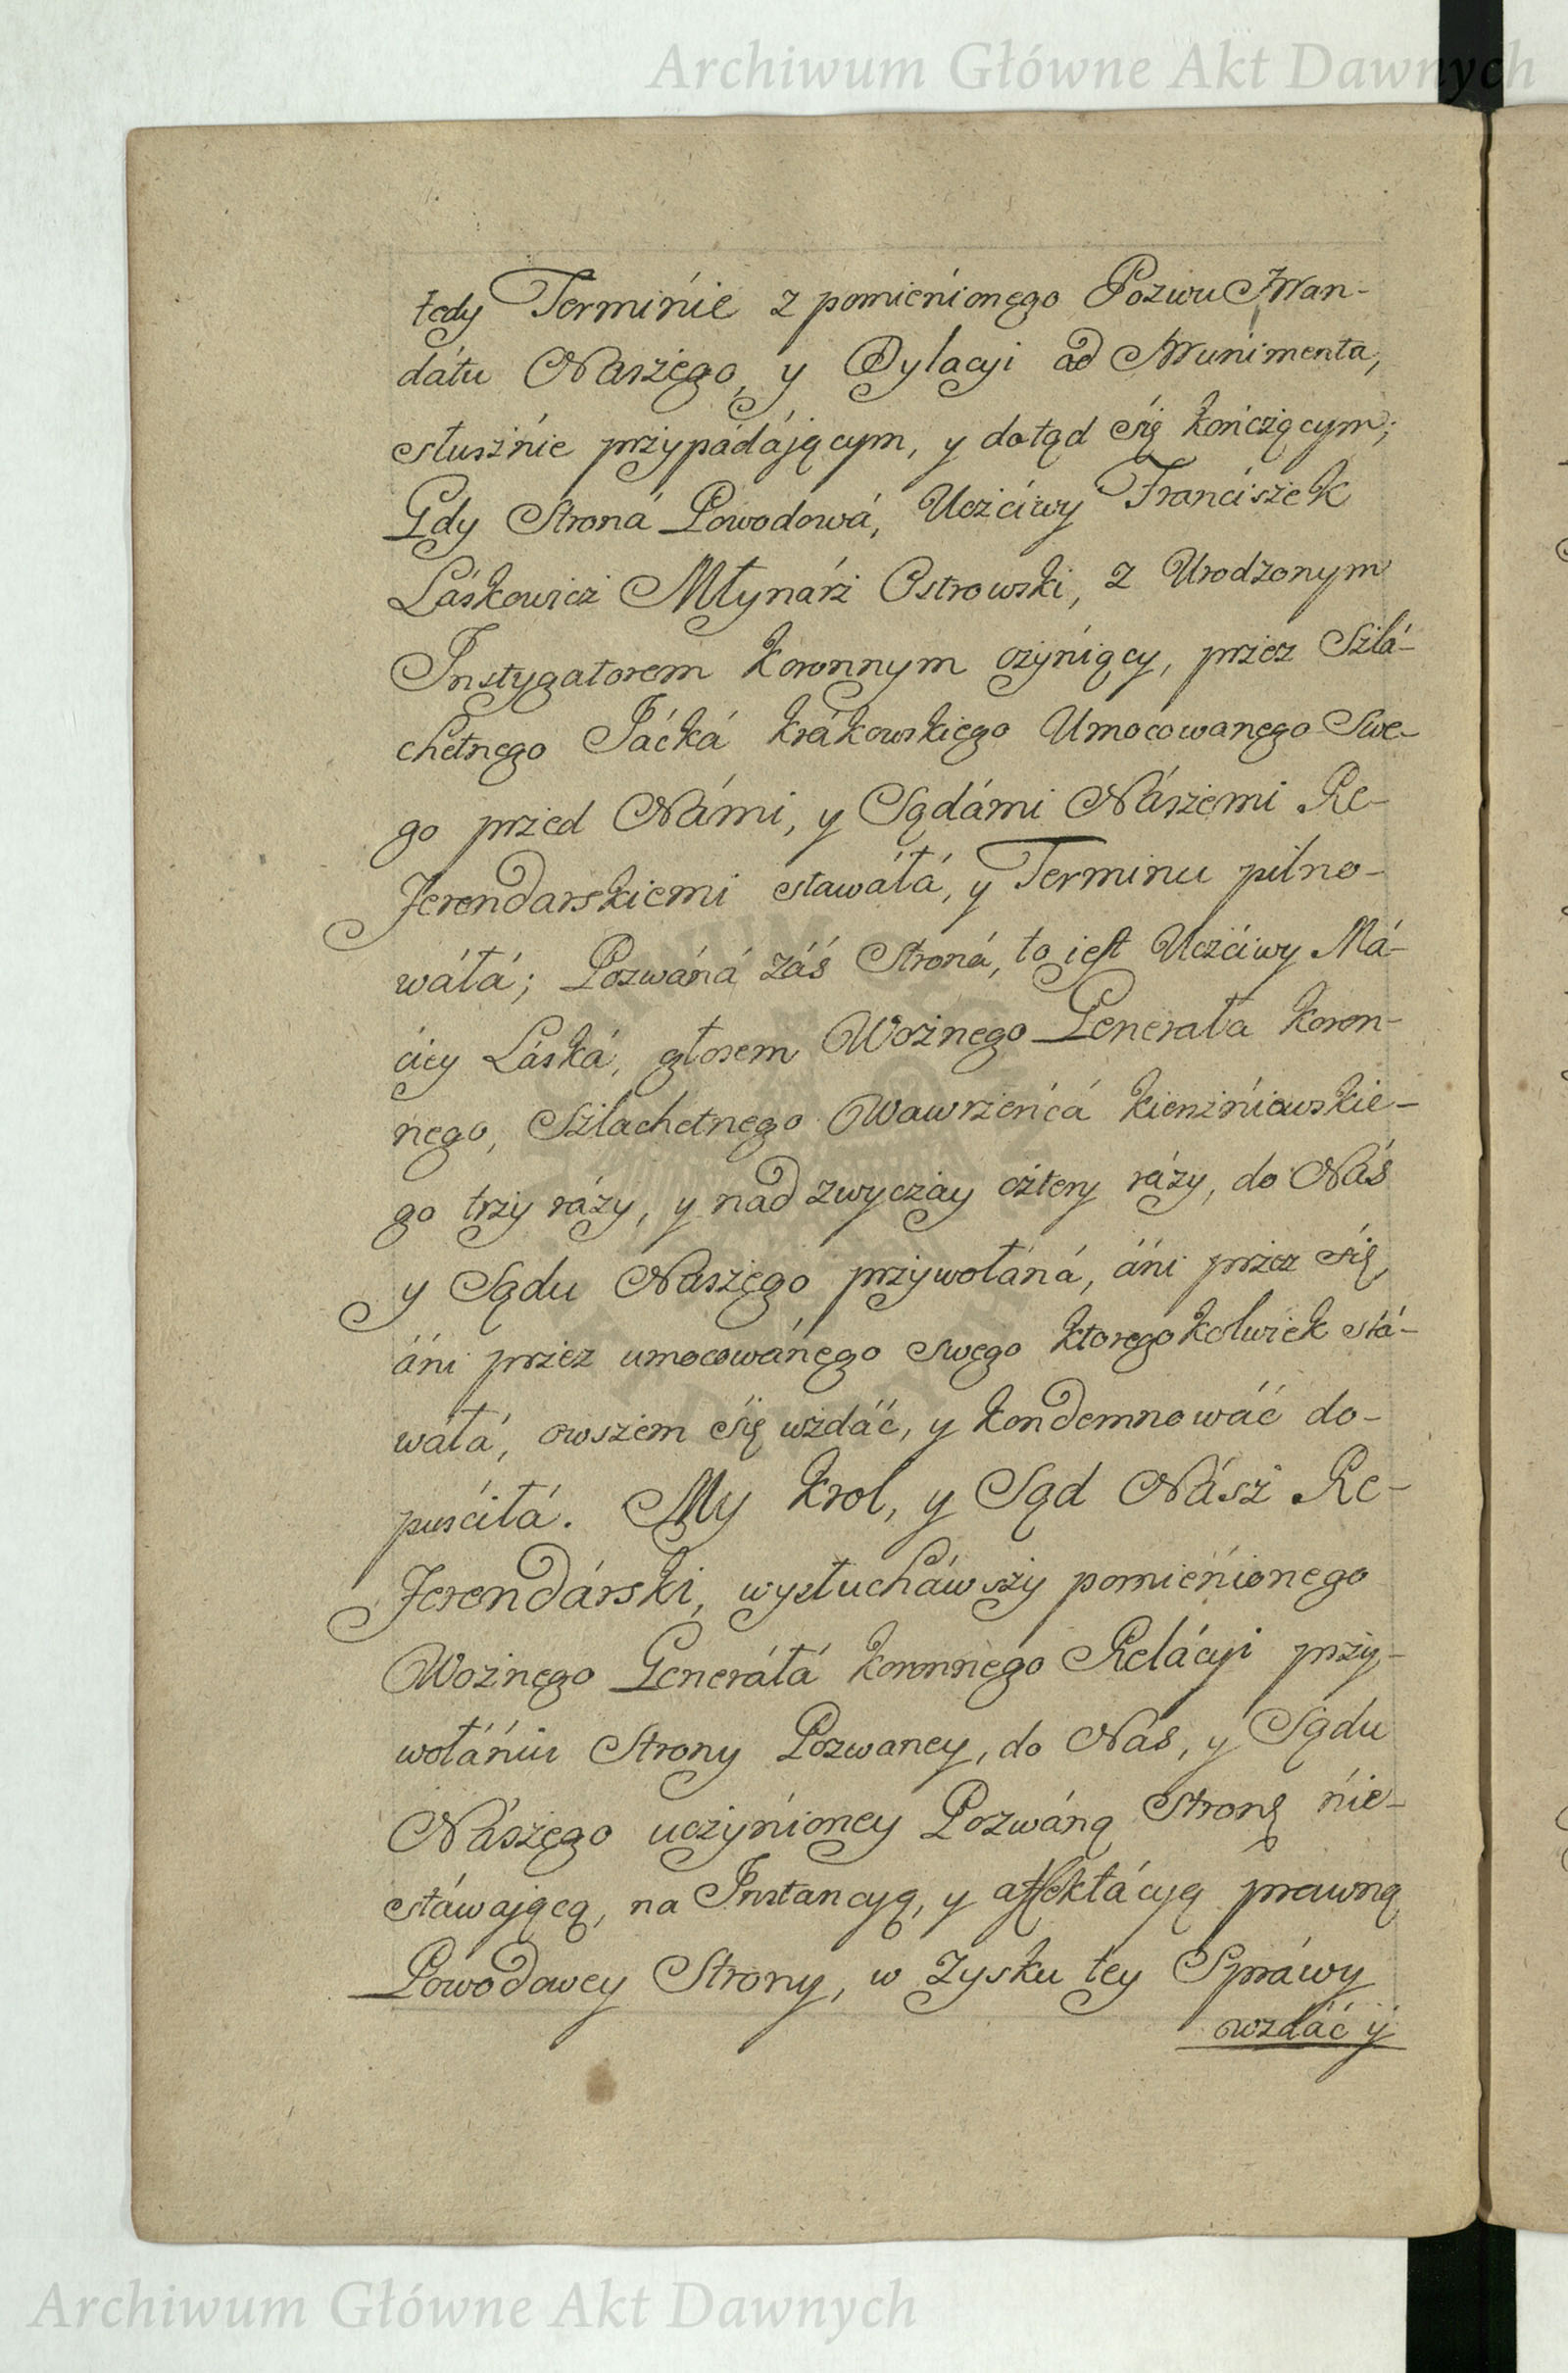 Archiwum Główne Akt Dawnych
tedy Terminie z pomienionego Pozwu Man-
dátu Naszego, y Dylacyi ad Munimenta,
słusznie przypádáiącym, y dotąd się kończącym;
Gdy Stroná Powodowá, Uczciwy Franciszek
Láskowicz Młynarz Ostrowski, z Urodzonym
Instygatorem Koronnym czyniący, przez Szlá-
chetnego Jácká Krákowskiego Umocowanego Swe-
go przed Námi, y Sądámi Nászemi Re-
ferendarskiemi stawáłá, y Terminu pilno-
wáłá; Pozwáná záś Stroná, to iest Uczciwy Má-
ciey Láská, głosem Woźnego Generała Koron-
nego, Szlachetnego Wawrzeńcá
go trzy rázy, y nad zwyczay cztery rázy, do Nás
y Sądu Naszego przywołáná, áni przez się,
áni przez umocowánego swego ktoregokolwiek stá-
wáłá, owszem się wzdáć, y kondemnowáć do-
puściłá. My Krol, y Sąd Nász Re-
ferendárski, wysłucháwszy pomienionego
Woźnego Generáłá Koronnego Relácyi przy-
wołániu Strony Pozwaney, do Nás, y Sądu
Nászego uczynioney Pozwáną Stronę nie-
stáwaiącą, na Instancyą, y affektácyą prawną
Powodowey Strony, w Zysku tey Spráwy
wzdáć y
Archiwum Główne Akt Dawnych